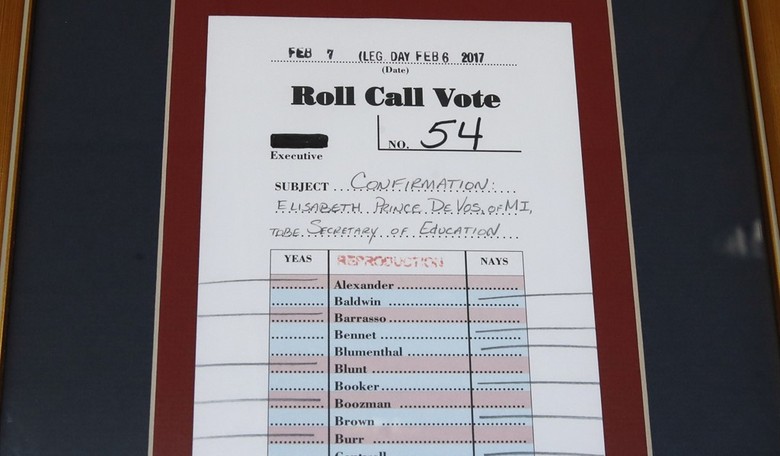 FEB 7 (LEG. DAY FEB 6 2017
(Date)
Roll Call Vote
NO. 54
Executive
SUBJECT CONFIRMATION:
ELISABETH PRINCE DEVOS, OF MI,
TO BE SECRETARY OF EDUCATION
YEAS REPRODUCTION NAYS
Alexander
Baldwin
Barrasso
Bennet
Blumenthal
Blunt
Booker
Boozman
Brown
Burr